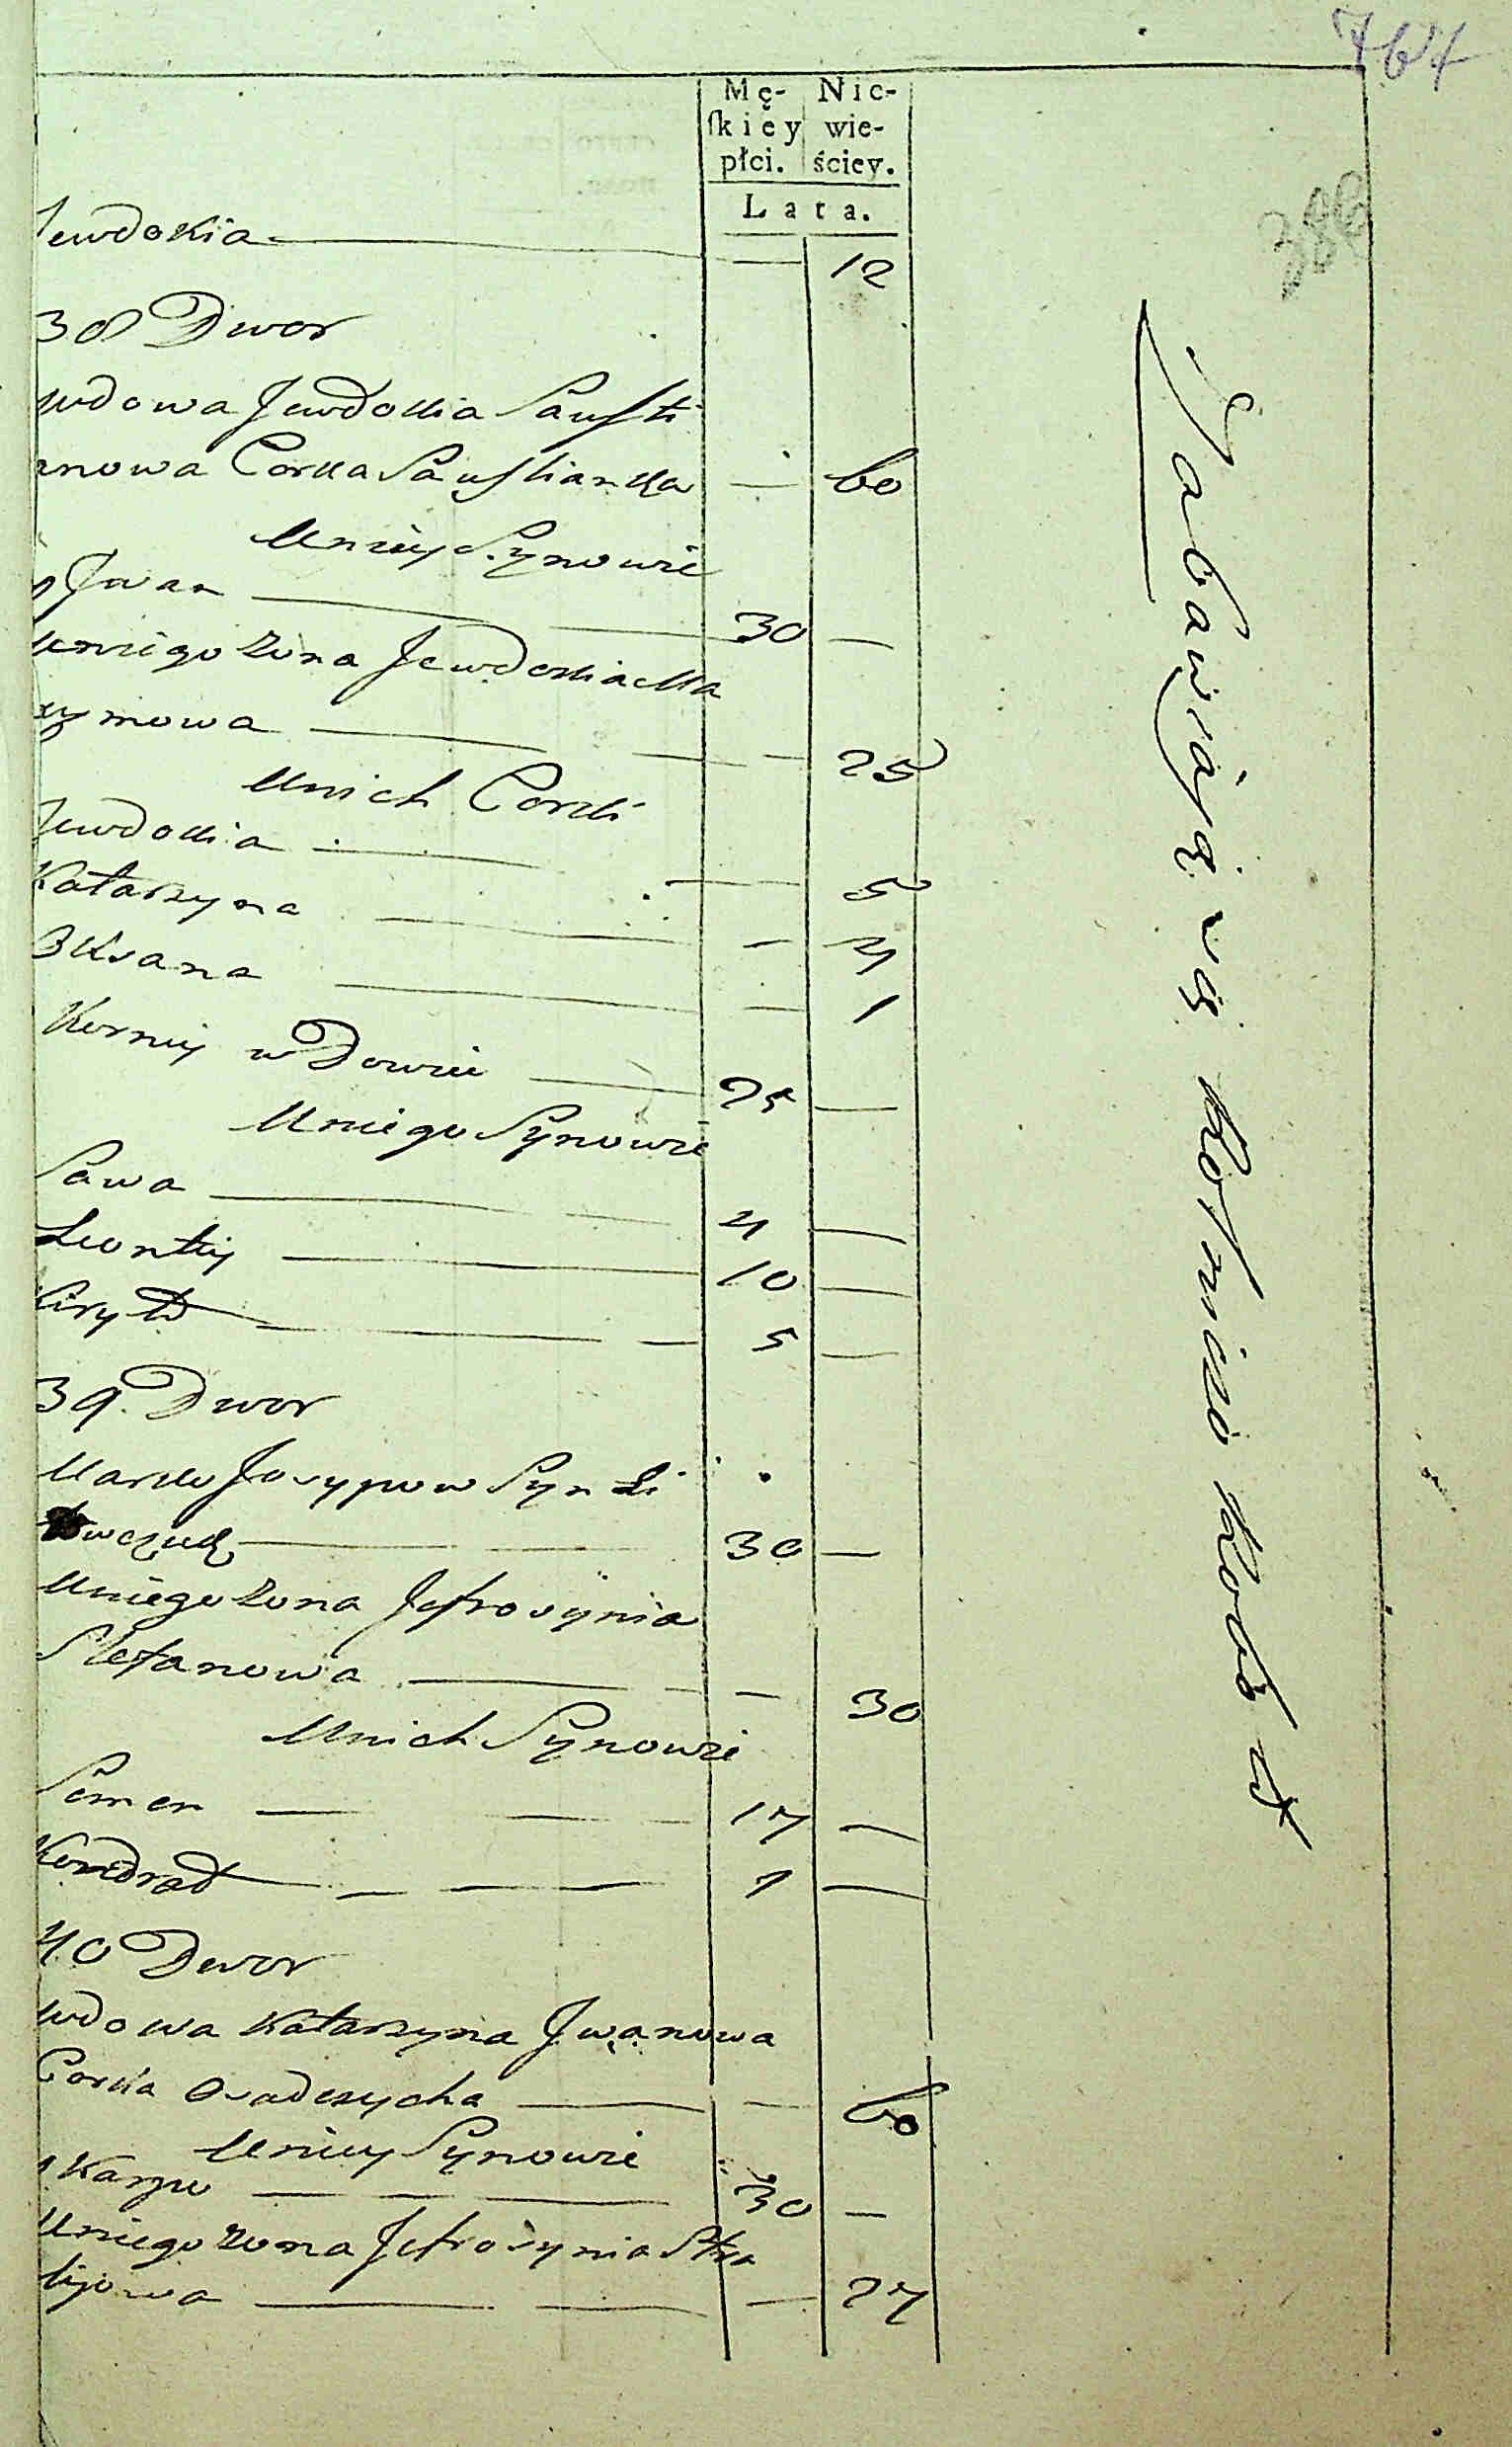 764
386
Mę- Nie-
ſkiey wie-
płci. ściey.
Lata.
Jewdokia — — 12
38 Dwor
wdowa Jewdokia Pawſti
anowa Corka Pawſtianka — 60
Uniey Synowie
1 Jwan — 30 —
Uniego Zona Jewdokia Ma
xymowa — — 25
Unich Corki
Jewdokia — — 5
Katarzyna — — 4
3 Ksana — — 1
Korniy wDowiec — 25 —
Uniego Synowie
Sawa — 4 —
Leontiy — 10 —
Kiryło — 5 —
39. Dwor
Marko Josypow Syn Li
wczuk — 30 —
Uniego Zona Jefrosynia
Stefanowa — — 30
Unich Synowie
Semen — 17 —
Kondrat — 1 —
40 Dwor
wdowa Katarzyna Jwanowa
Corka Osadczycha — — 60
Uniey Synowie
1 Karpo — 30 —
Uniego Zona Jefrosynia
lijowa — — 27
Zabawiaią się Rolniczo Robotą